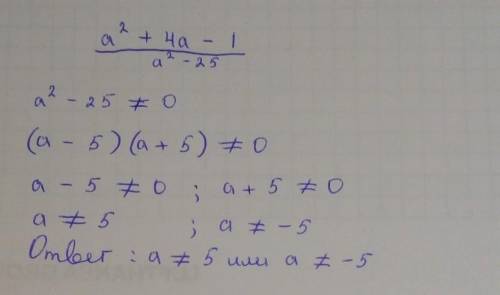 a² + 4a - 1
a² - 25
a² - 25 ≠ 0
(a - 5) (a + 5) ≠ 0
a - 5 ≠ 0 ; a + 5 ≠ 0
a ≠ 5 ; a ≠ -5
Ответ : a ≠ 5 или a ≠ -5